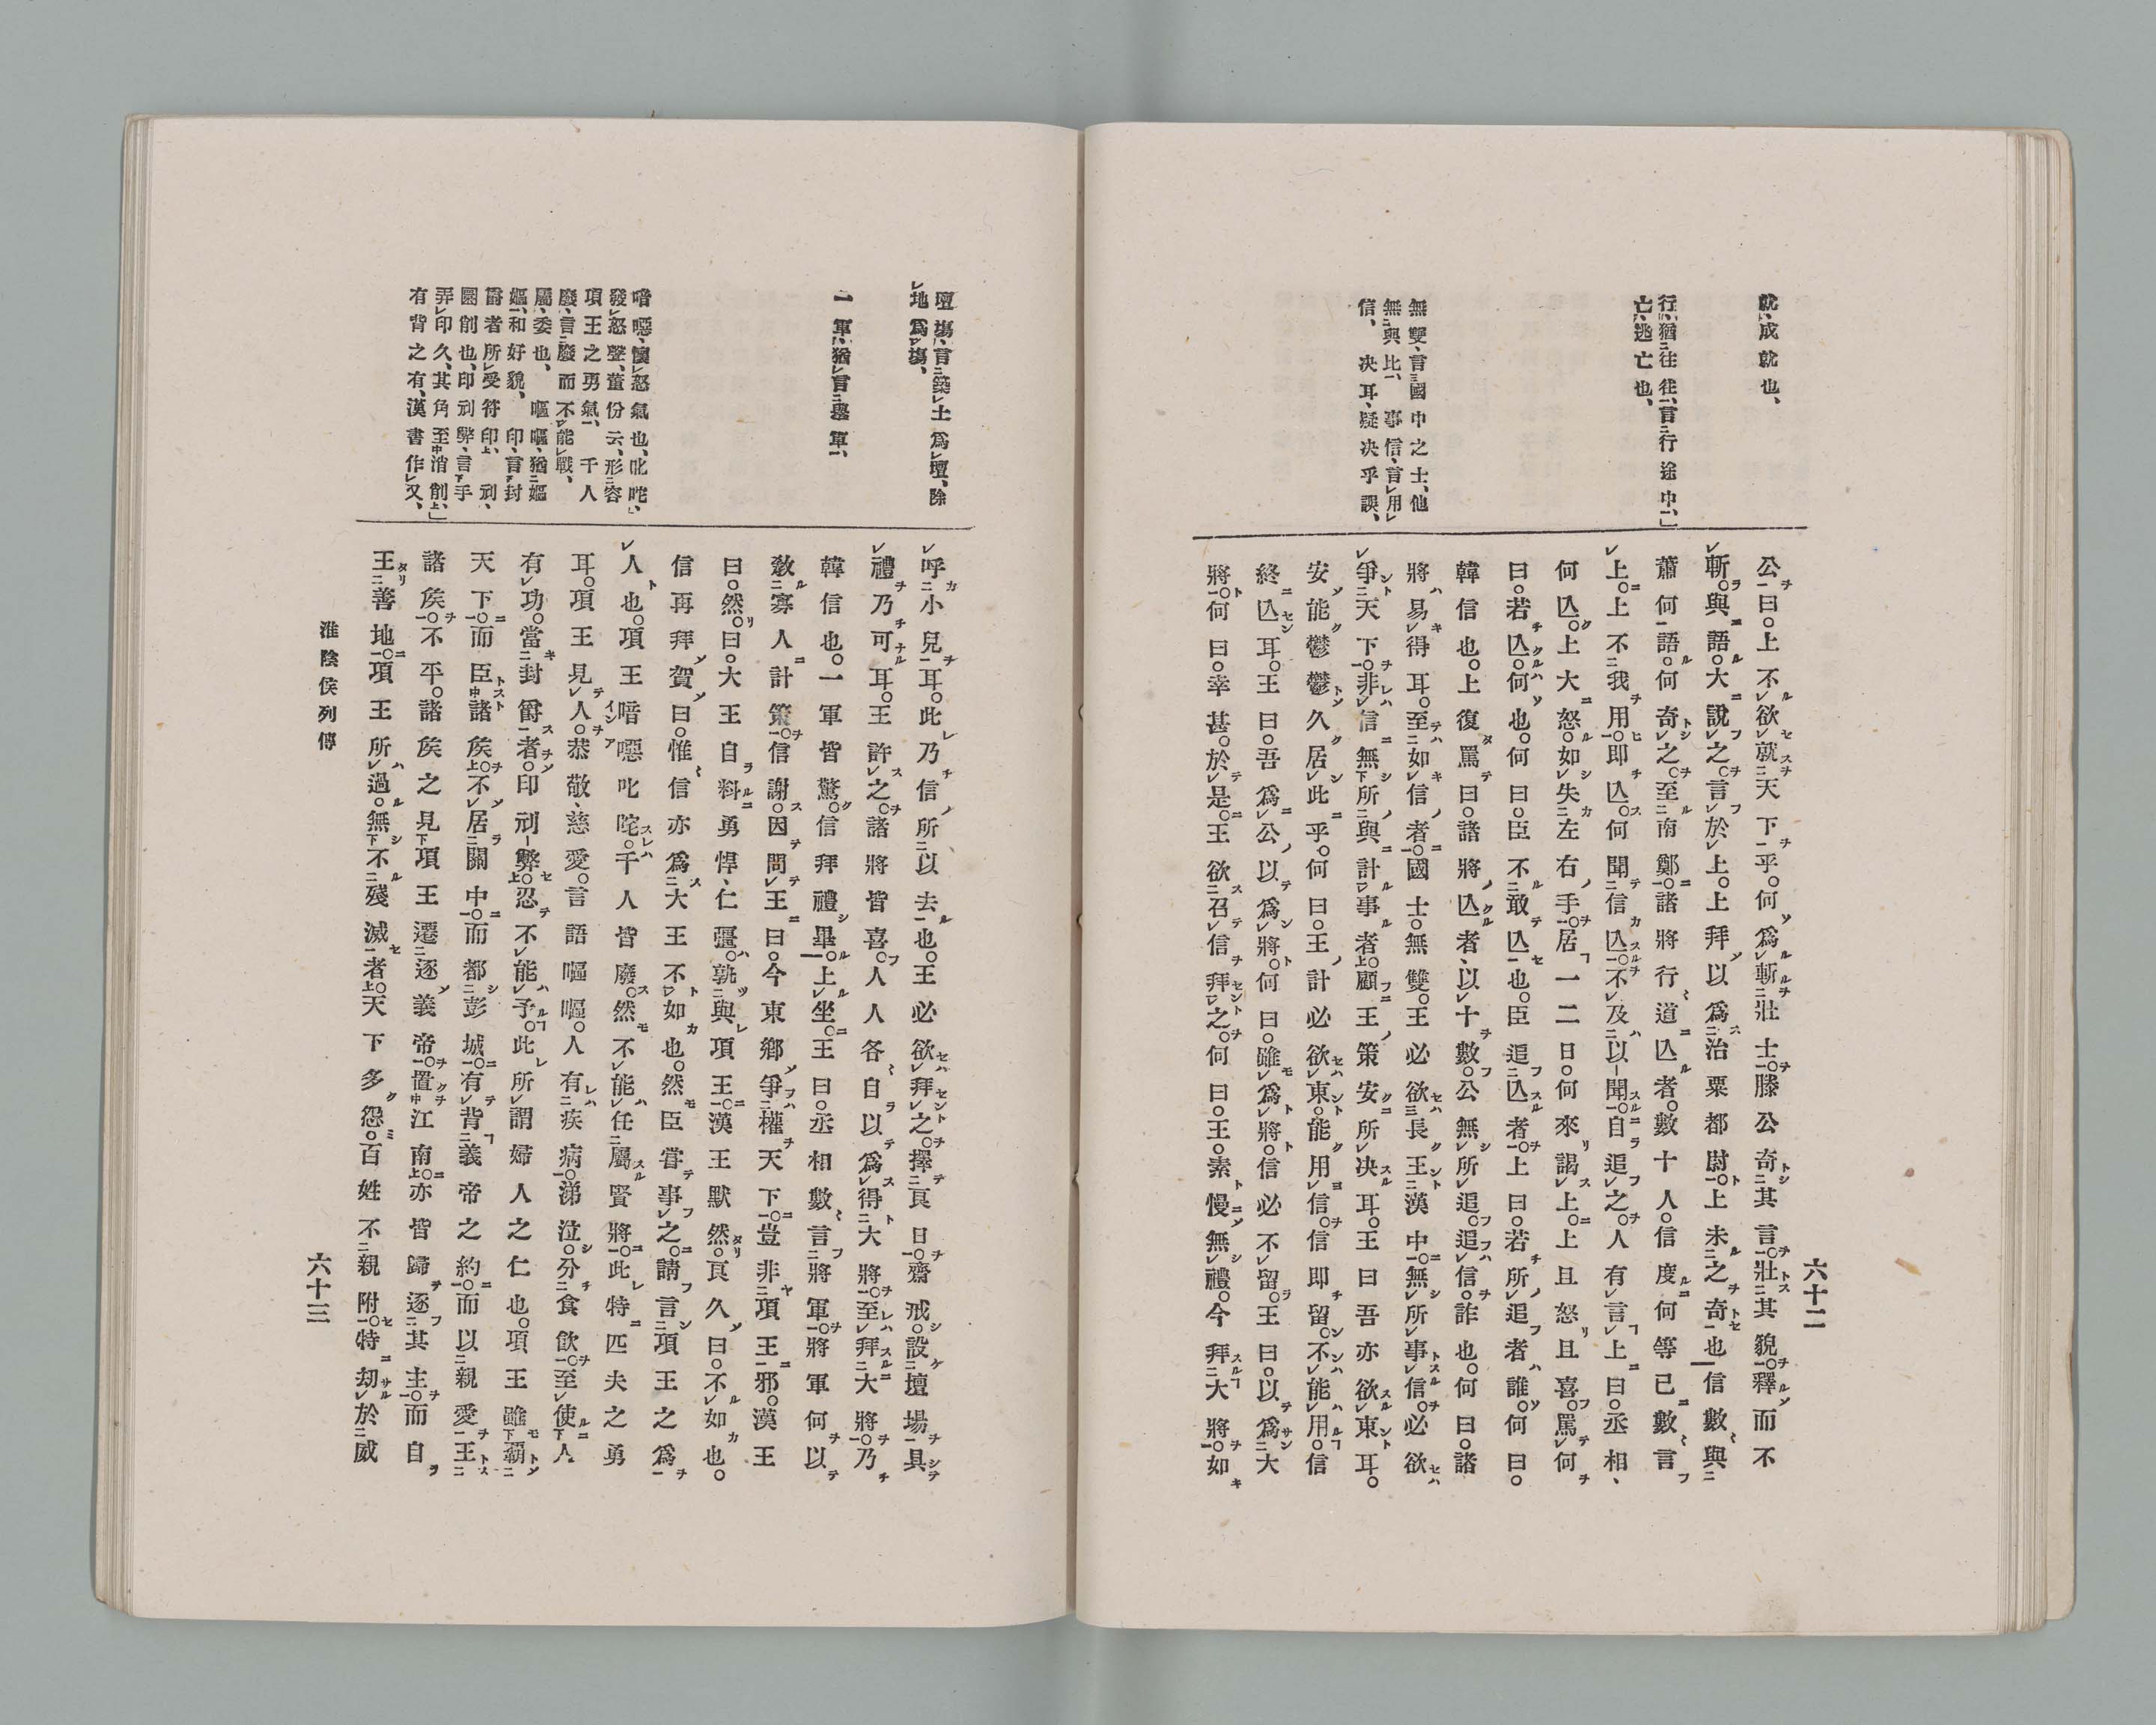 六十二
就、成就也、
行、猶往往、言行途中、」
亡、逃亡也、
無雙、言國中之士、他
無與比、事信、言用
信、决耳、疑决乎誤、
公曰。上不欲就天下乎。何爲斬壯士。滕公奇其言。壯其貌。釋而不
斬。與語。大說之。言於上。上拜以爲治粟都尉。上未之奇也信數與
蕭何語。何奇之。至南鄭。諸將行道亾者。數十人。信度何等已數言
上。上不我用。即亾。何聞信亾。不及以聞。自追之。人有言上曰。丞相、
何亾。上大怒。如失左右手。居一二日。何來謁上。上且怒且喜。罵何
曰。若亾。何也。何曰。臣不敢亾也。臣追亾者。上曰。若所追者誰。何曰。
韓信也。上復罵曰。諸將亾者、以十數。公無所追。追信。詐也。何曰。諸
將易得耳。至如信者。國士。無雙。王必欲長王漢中。無所事信。必欲
爭天下。非信無所與計事者。顧王策安所决耳。王曰吾亦欲東耳。
安能鬱鬱久居此乎。何曰。王計必欲東。能用信。信即留。不能用。信
終亾耳。王曰。吾爲公以爲將。何曰。雖爲將。信必不留。王曰。以爲大
將。何曰。幸甚。於是。王欲召信拜之。何曰。王。素慢無禮。今拜大將。如
壇塲、言築土爲壇、除
地爲塲、
一軍、猶言擧軍、
喑噁、懷怒氣也、叱咤、
發怒聲、董份云、形容
項王之勇氣、千人
廢、言廢而不能戰、
屬、委也、嘔嘔、猶嫗
嫗、和好貌、印、言封
爵者所受符印、刓、
團削也、印刓弊、言手
弄印久、其角至消削、」
有背之有、漢書作又、
呼小兒耳。此乃信所以去也。王必欲拜之。擇良日。齋戒。設壇場具
禮乃可耳。王許之。諸將皆喜。人人各自以爲得大將。至拜大將。乃
韓信也。一軍皆驚。信拜禮畢。上坐。王曰。丞相數言將軍。將軍何以
敎寡人計策。信謝。因問王曰。今東鄉爭權天下。豈非項王邪。漢王
曰。然。曰。大王自料勇悍、仁彊。孰與項王。漢王默然。良久曰。不如也。
信再拜賀曰。惟信亦爲大王不如也。然臣嘗事之。請言項王之爲
人也。項王喑噁叱咤。千人皆廢。然不能任屬賢將。此特匹夫之勇
耳。項王見人。恭敬、慈愛。言語嘔嘔。人有疾病。涕泣。分食飮。至使人
有功。當封爵者。印刓弊。忍不能予。此所謂婦人之仁也。項王雖霸
天下。而臣諸矦。不居關中。而都彭城。有背義帝之約。而以親愛王
諸矦。不平。諸矦之見項王遷逐義帝。置江南。亦皆歸逐其主。而自
王善地。項王所過。無不殘滅者。天下多怨。百姓不親附。特劫於威
淮陰侯列傳
六十三